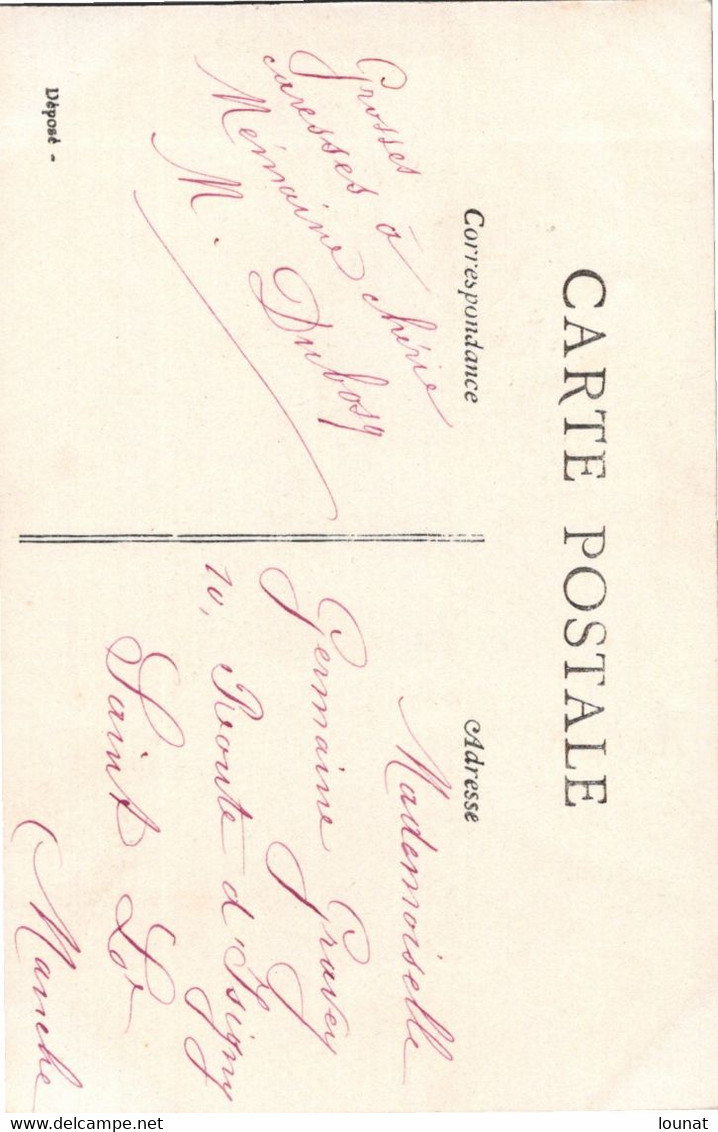 CARTE POSTALE
Correspondance
Grosses
caresses à chérie
Mémaine
M. Dubosq
Déposé -
Adresse
Mademoiselle
Germaine Gravey
10, Route d'Isigny
Saint Lô
(Manche
lounat